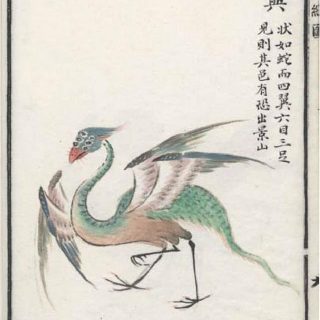 與
狀如蛇而四翼六目三足
見則其邑有恐出景山